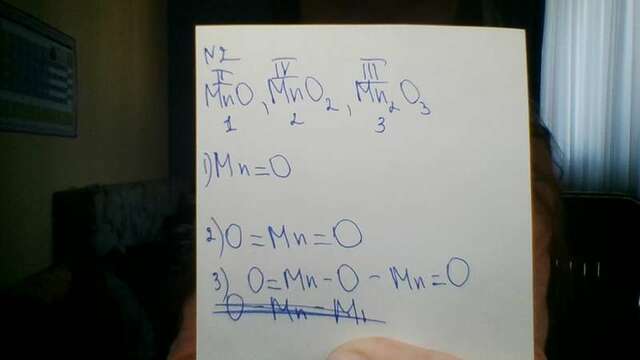 N2
II IV III
MnO, MnO₂, Mn₂O₃
1 2 3
1) Mn=O
2) O=Mn=O
3) O=Mn-O-Mn=O
O-Mn-M